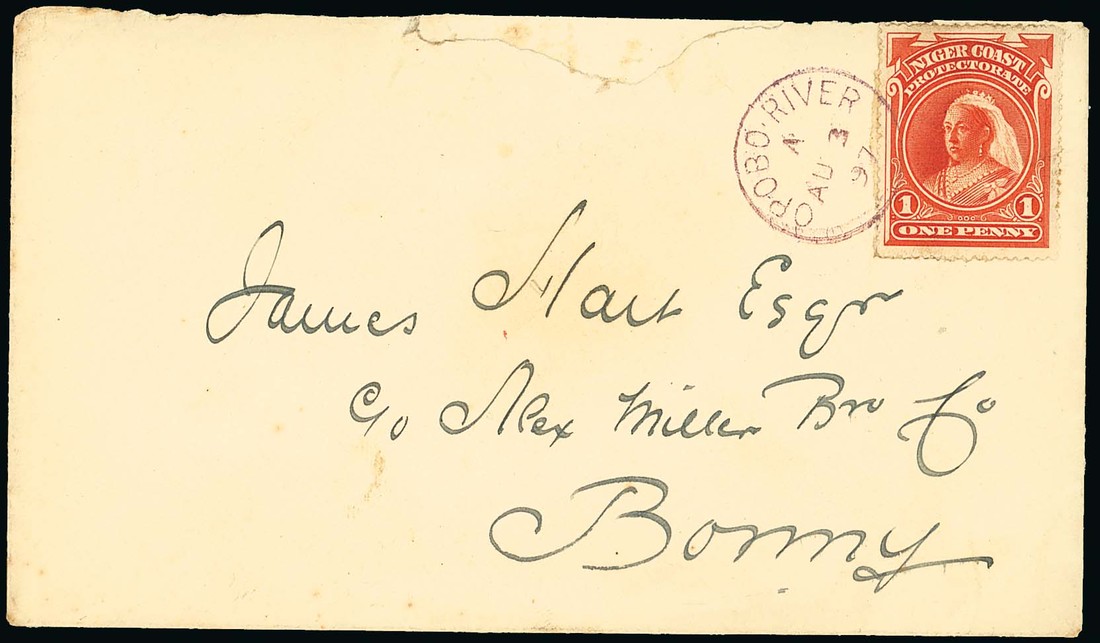 OPOBO·RIVER
A
AU 3
97
NIGER COAST
PROTECTORATE
1 1
ONE PENNY
James Hart Esqr
C/o Alex Miller Bro Co
Bonny